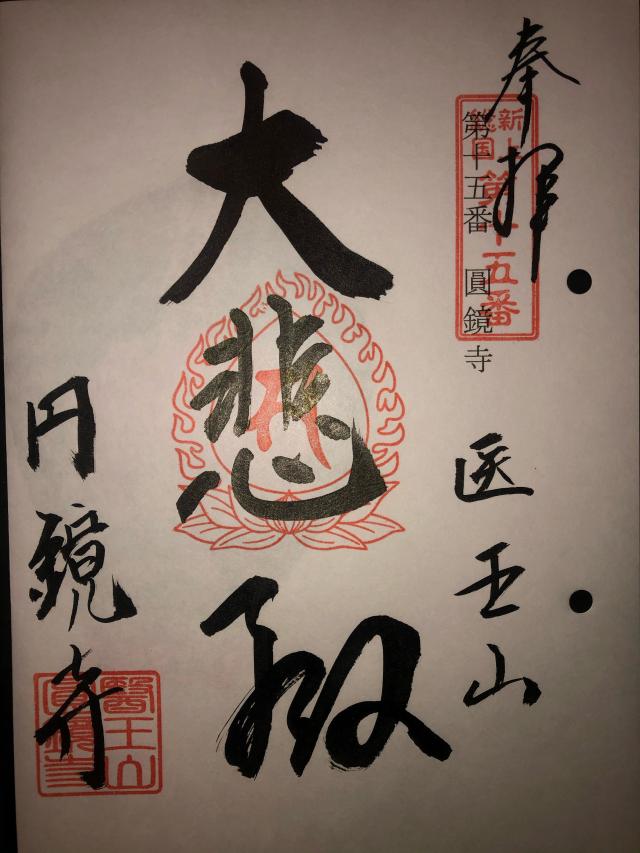 奉拝
新上総国
第十五番
第十五番 圓鏡寺
医王山
大悲殿
円鏡寺
醫王山
圓鏡寺